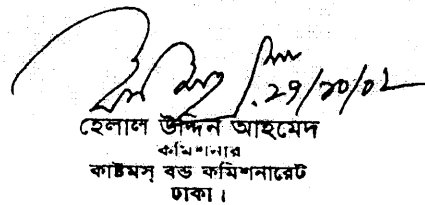 29/10/02
হেলাল উদ্দিন আহমেদ
কমিশনার
কাষ্টমস্ বন্ড কমিশনারেট
ঢাকা।